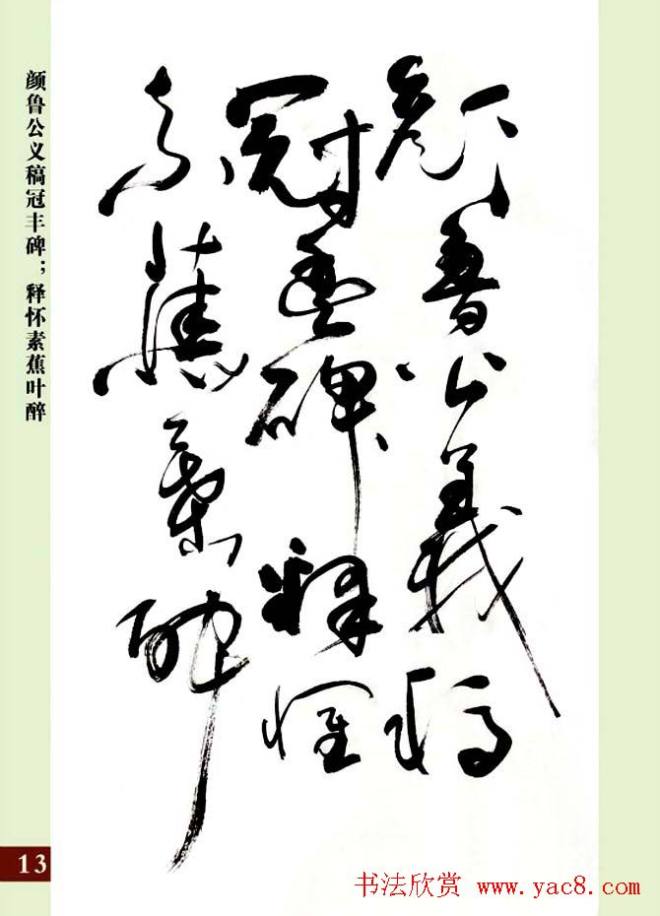 顔魯公義稿
冠豐碑釋懷
素蕉葉醉
颜鲁公义稿冠丰碑；释怀素蕉叶醉
13
书法欣赏 www.yac8.com